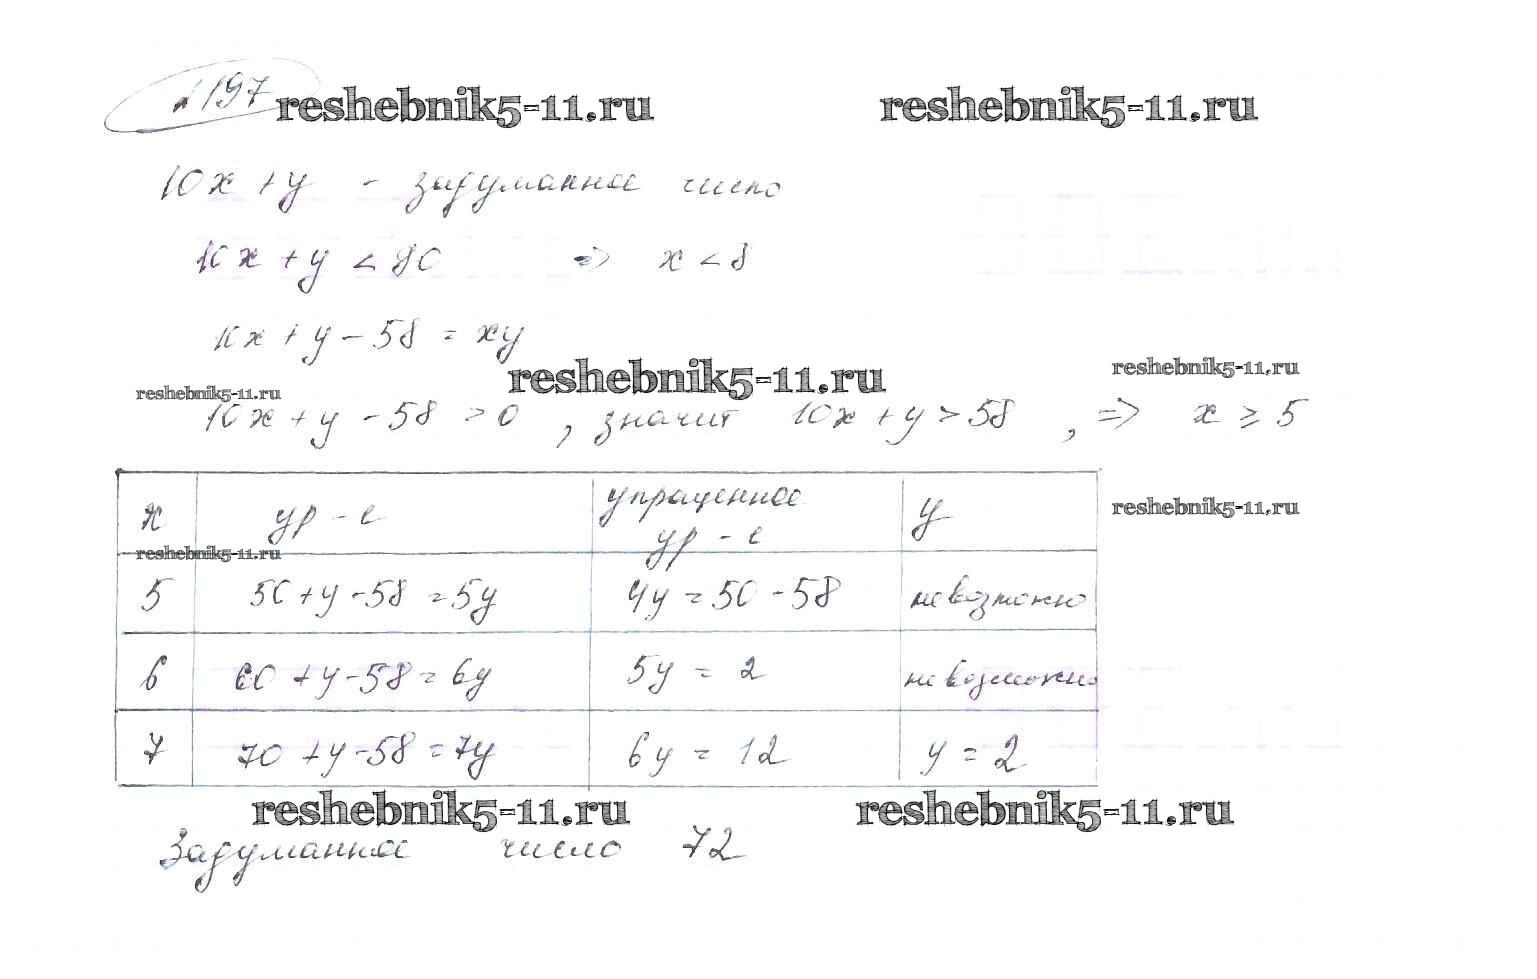 №197 reshebnik5-11.ru reshebnik5-11.ru
10x + y - задуманное число
10x + y < 80 => x < 8
10x + y - 58 = xy
reshebnik5-11.ru reshebnik5-11.ru reshebnik5-11.ru
10x + y - 58 > 0 , значит 10x + y > 58 , => x ≥ 5
x ур-е упращенное ур-е y
reshebnik5-11.ru reshebnik5-11.ru
5 50 + y - 58 = 5y 4y = 50 - 58 невозможно
6 60 + y - 58 = 6y 5y = 2 невозможно
7 70 + y - 58 = 7y 6y = 12 y = 2
reshebnik5-11.ru reshebnik5-11.ru
Задуманное число 72